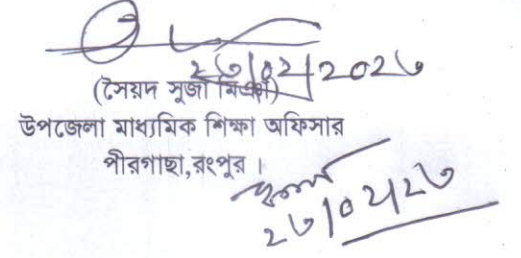 ২৬/০২/২০২৬
(সৈয়দ সুজা মিঞা)
উপজেলা মাধ্যমিক শিক্ষা অফিসার
পীরগাছা,রংপুর।
২৬/০২/২৬